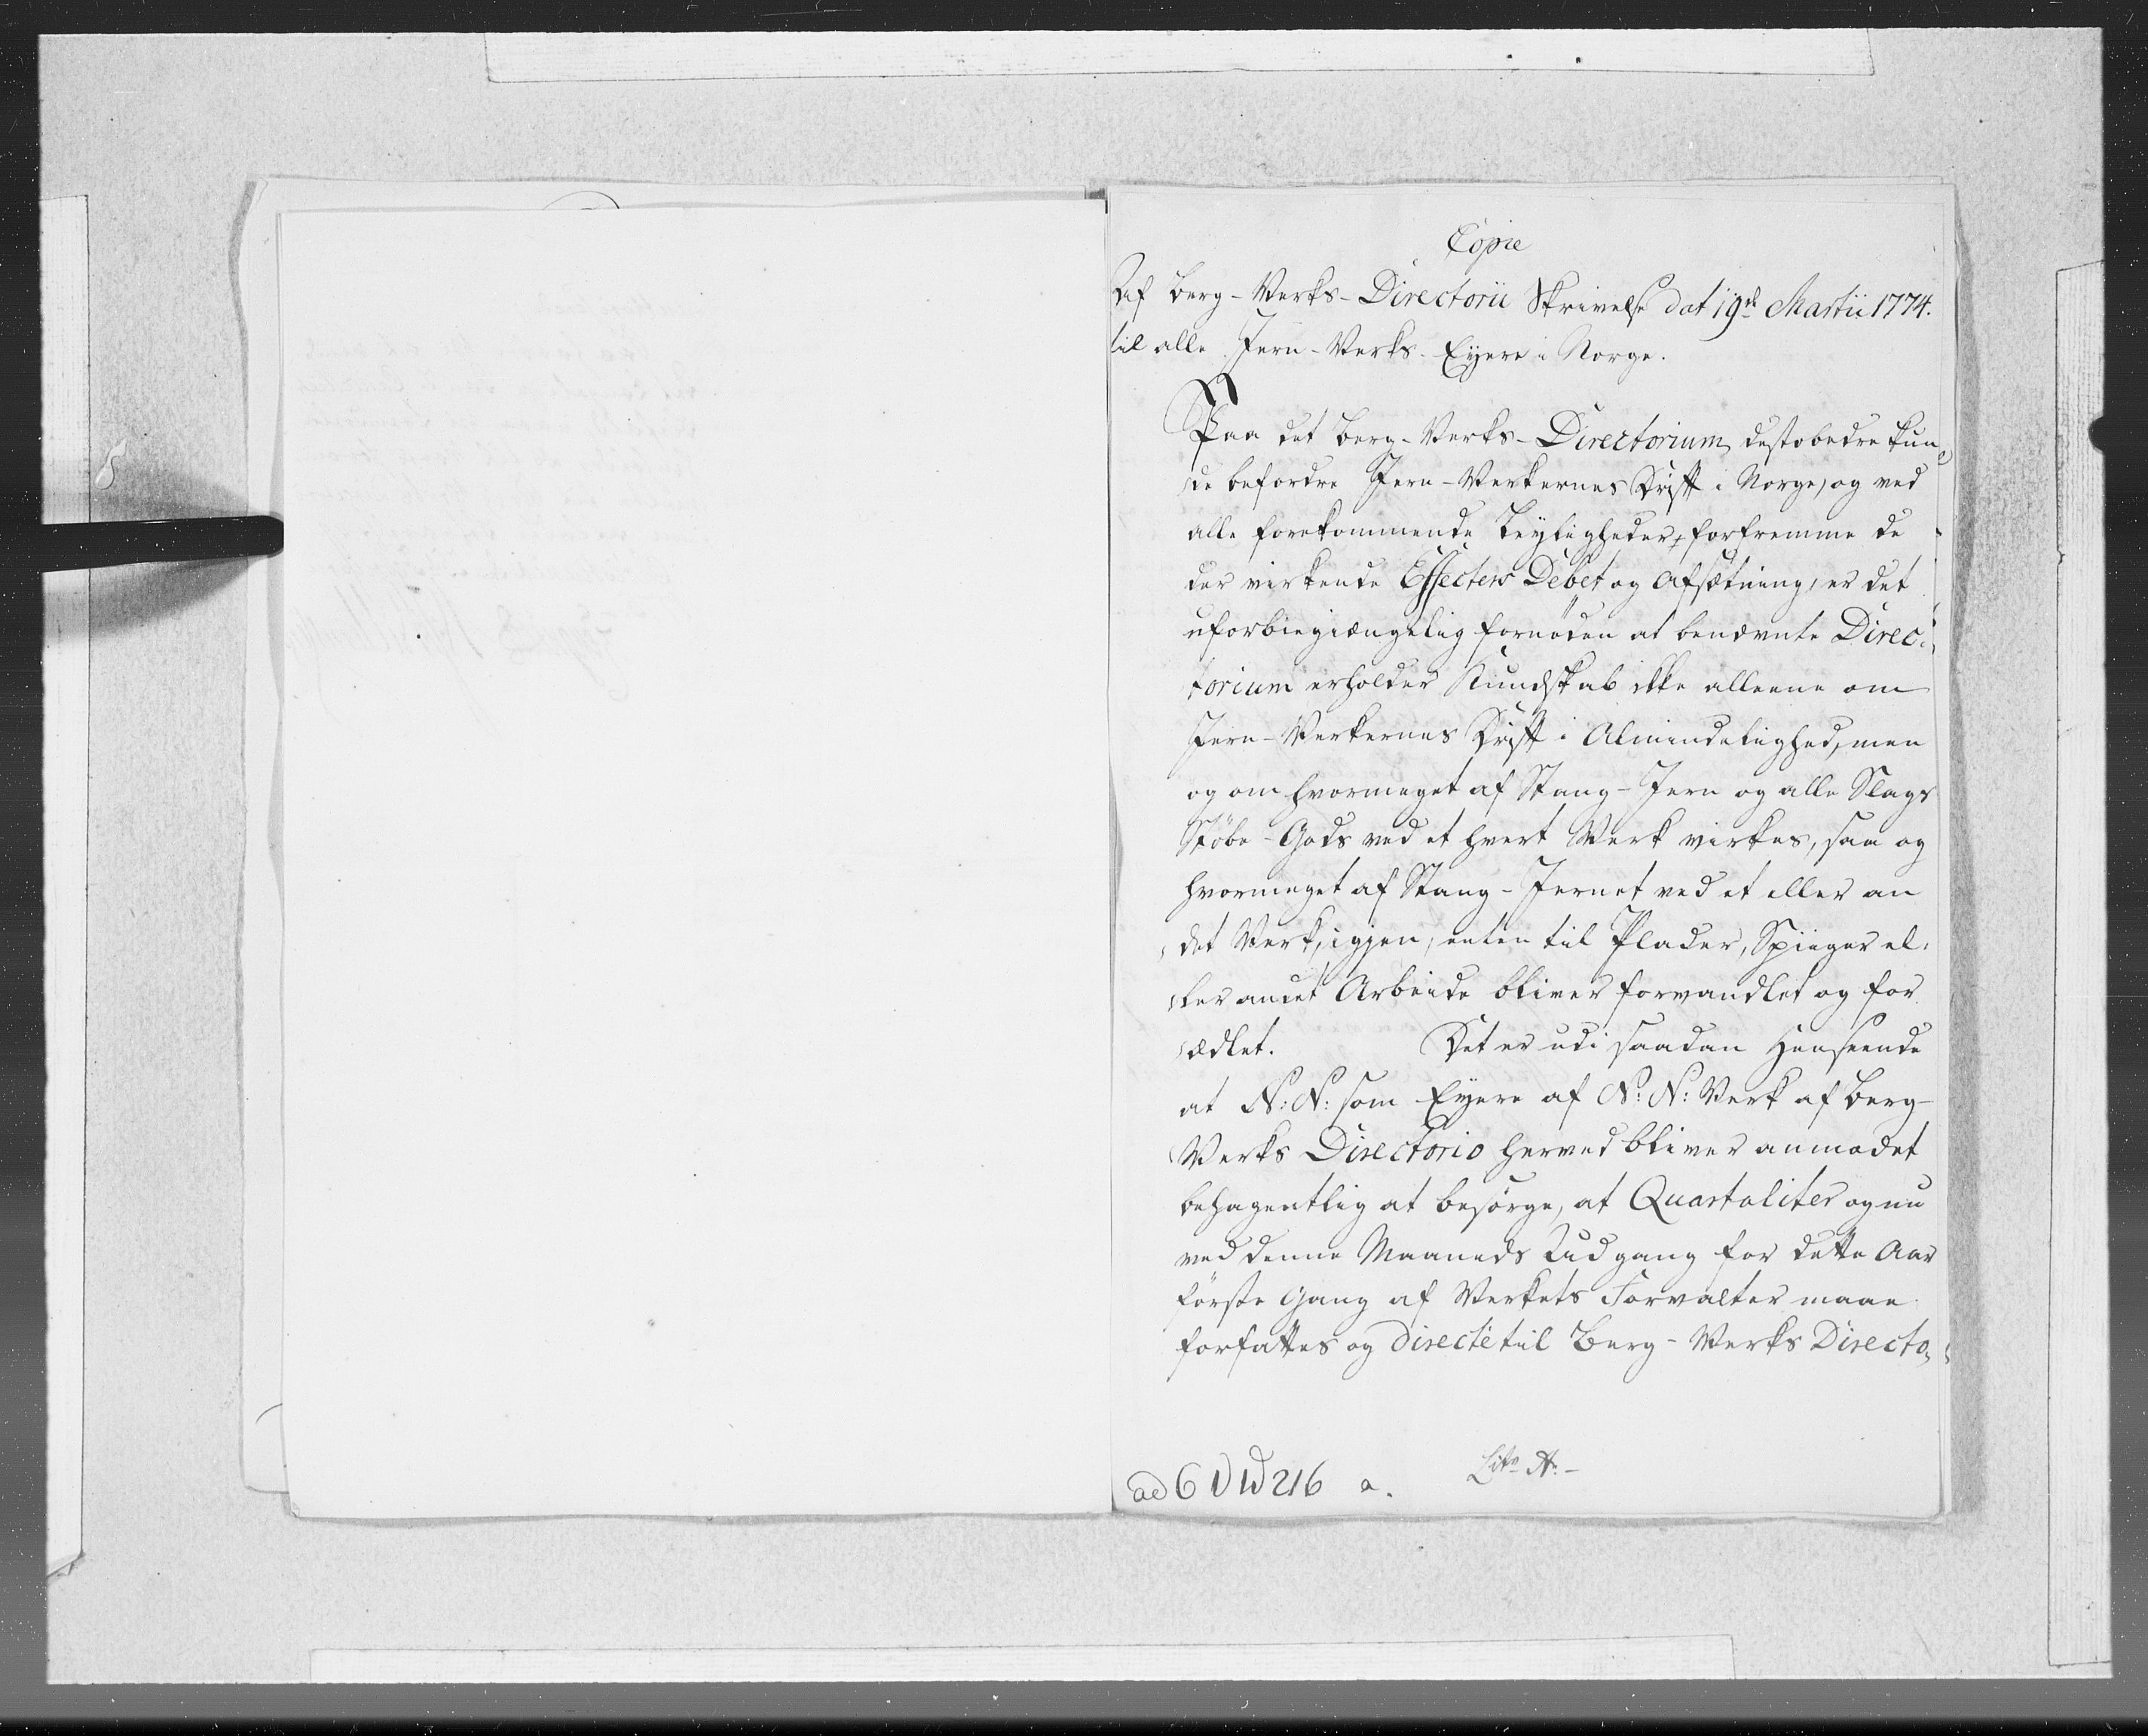 Copie
Af Berg-Verks-Directorii Skrivelse dat 19de Martii 1774.
til alle Jern-Verks-Eyere i Norge.
Paa det Berg-Verks-Directorium destobedre kun-
de befordre Jern-Verkernes Drift i Norge, og ved
alle forekommende Leyligheder, forfremme de
der virkende Effecters Debet og Afsætning, er det
uforbiegiængelig fornöden at benævnte Direc-
torium erholder Kundskab ikke alleene om
Jern-Verkernes Drift i Almindelighed, men
og om hvormeget af Stang-Jern og alle Slags
Støbe-Gods ved et hvert Verk virkes, saa og
hvormeget af Stang-Jernet ved et eller an
det Verk, igjen, enten til Plader, Spiiger el-
ler andet Arbeide bliver forvandlet og for
ædlet. Det er udi saadan Henseende
at N: N: som Eyere af N: N: Verk af Berg-
Verks Directorio herved bliver anmodet
behagentlig at besörge, at Quartaliter og nu
ved denne Maaneds Udgang for dette Aar
förste Gang af Verkets Forvalter maae
forfattes og directe til Berg-Verks Directo-
ad 6 216 a.
Litr A.